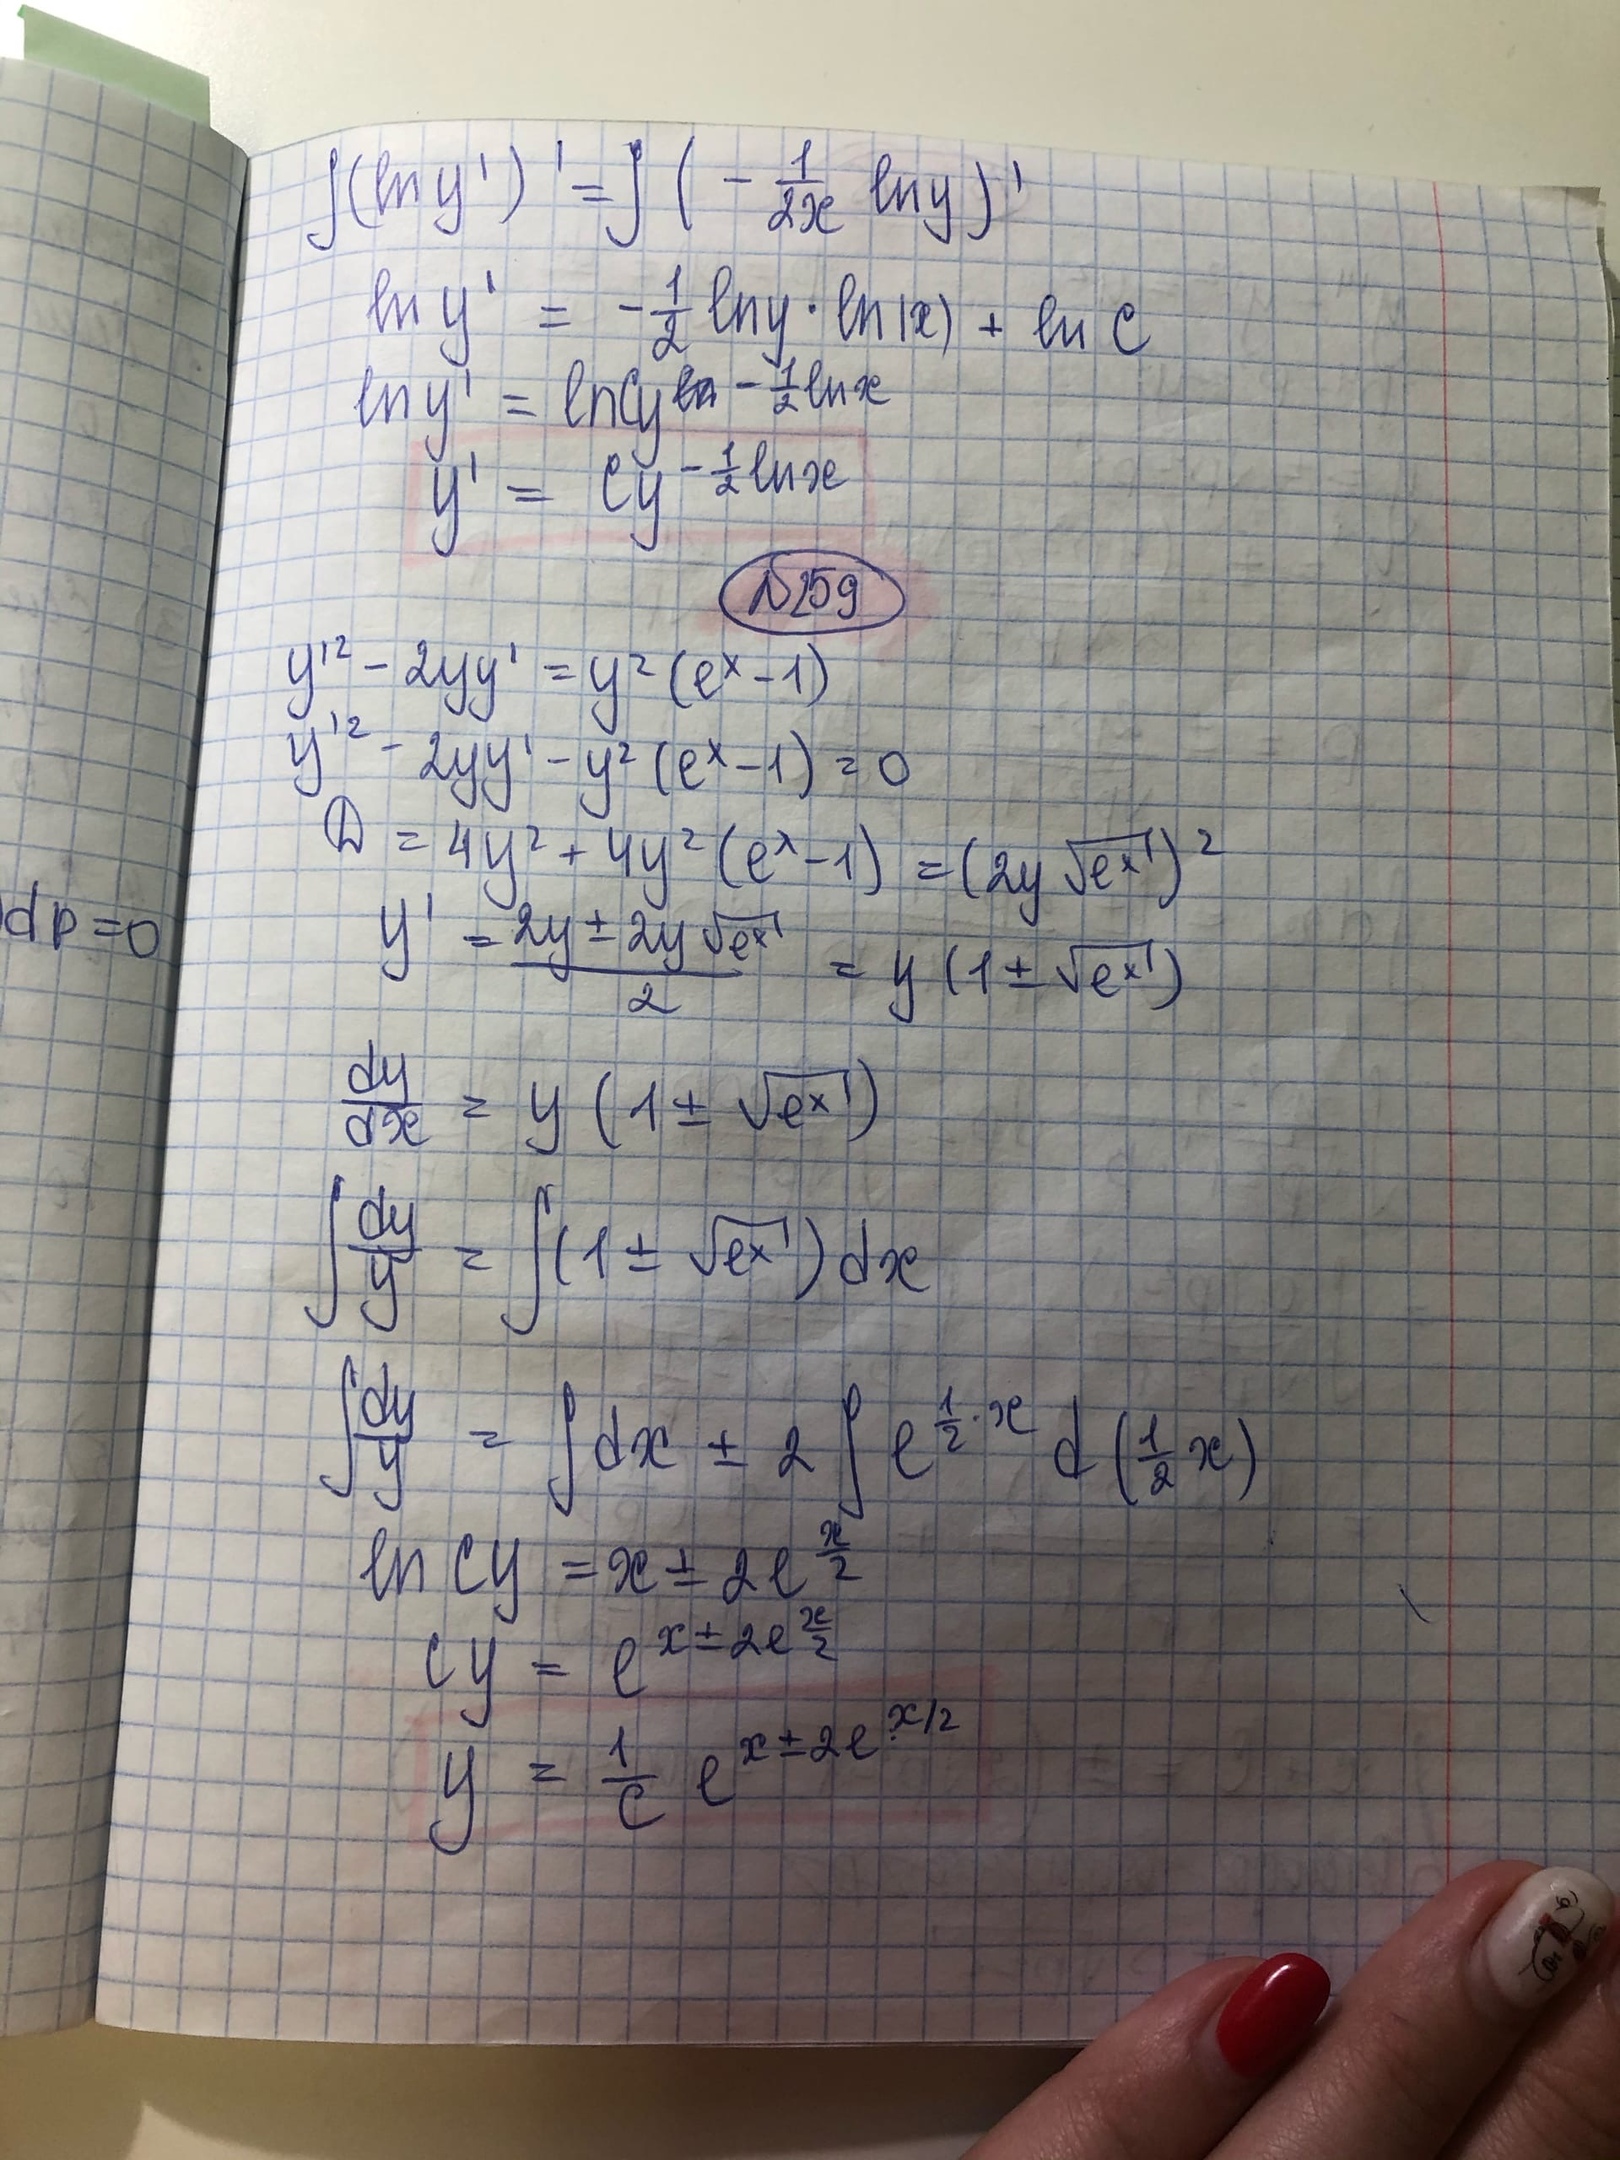 ∫(ln y')' = ∫(-1/(2x) ln y)'
ln y' = -1/2 ln y · ln|x| + ln C
ln y' = ln Cy^(-1/2 ln x)
y' = Cy^(-1/2 ln x)
№259
y'² - 2yy' = y²(eˣ - 1)
y'² - 2yy' - y²(eˣ - 1) = 0
D = 4y² + 4y²(eˣ - 1) = (2y√eˣ)²
dp = 0
y' = (2y ± 2y√eˣ)/2 = y(1 ± √eˣ)
dy/dx = y(1 ± √eˣ)
∫dy/y = ∫(1 ± √eˣ)dx
∫dy/y = ∫dx ± 2∫e^(1/2·x) d(1/2 x)
ln Cy = x ± 2e^(x/2)
Cy = e^(x ± 2e^(x/2))
y = 1/C e^(x ± 2e^(x/2))